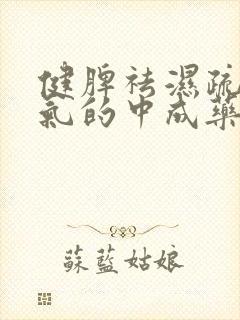 健脾祛濕疏
氣的中成藥
蘇藍姑娘